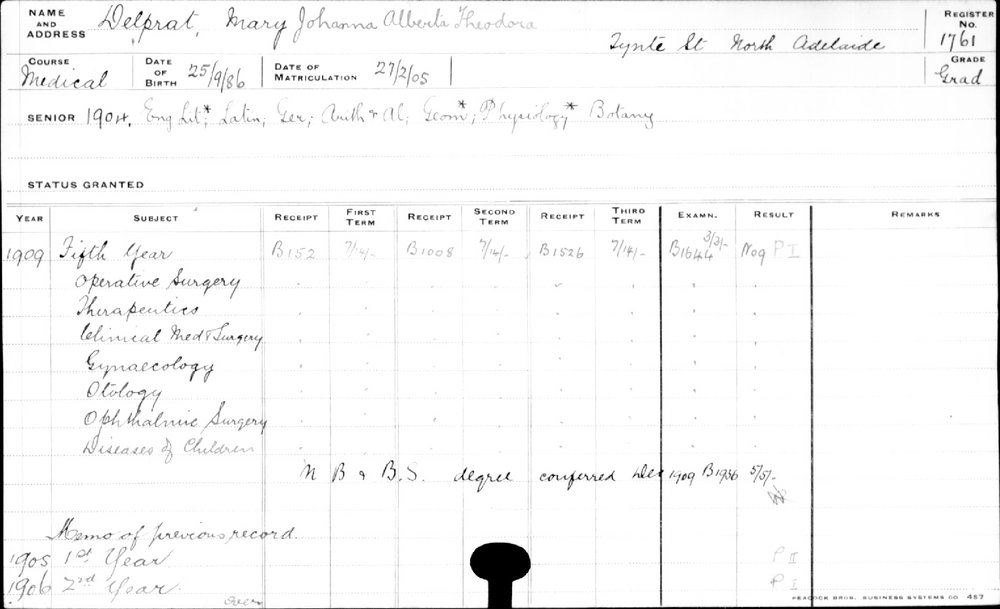 NAME AND ADDRESS Delprat, Mary Johanna Alberta Theodora
Tynte St North Adelaide
REGISTER No. 1761
COURSE Medical DATE OF BIRTH 25/9/86 DATE OF MATRICULATION 27/2/05 GRADE Grad
SENIOR 1904, Eng Lit*; Latin; Ger; Arith & Al; Geom*; Physiology* Botany
STATUS GRANTED
YEAR SUBJECT RECEIPT FIRST TERM RECEIPT SECOND TERM RECEIPT THIRD TERM EXAMN. RESULT REMARKS
1909 Fifth Year B152 7/14/- B1008 7/14/- B1526 7/14/- B1644 3/3/- Nog P I
Operative Surgery
Therapeutics
Clinical Med & Surgery
Gynaecology
Otology
Ophthalmic Surgery
Diseases of Children
M B & B.S. degree conferred Dec 1909 B1936 5/5/-
Memo of previous record.
1905 1st Year P II
1906 2nd Year. P I
over
PEACOCK BROS. BUSINESS SYSTEMS CO 457